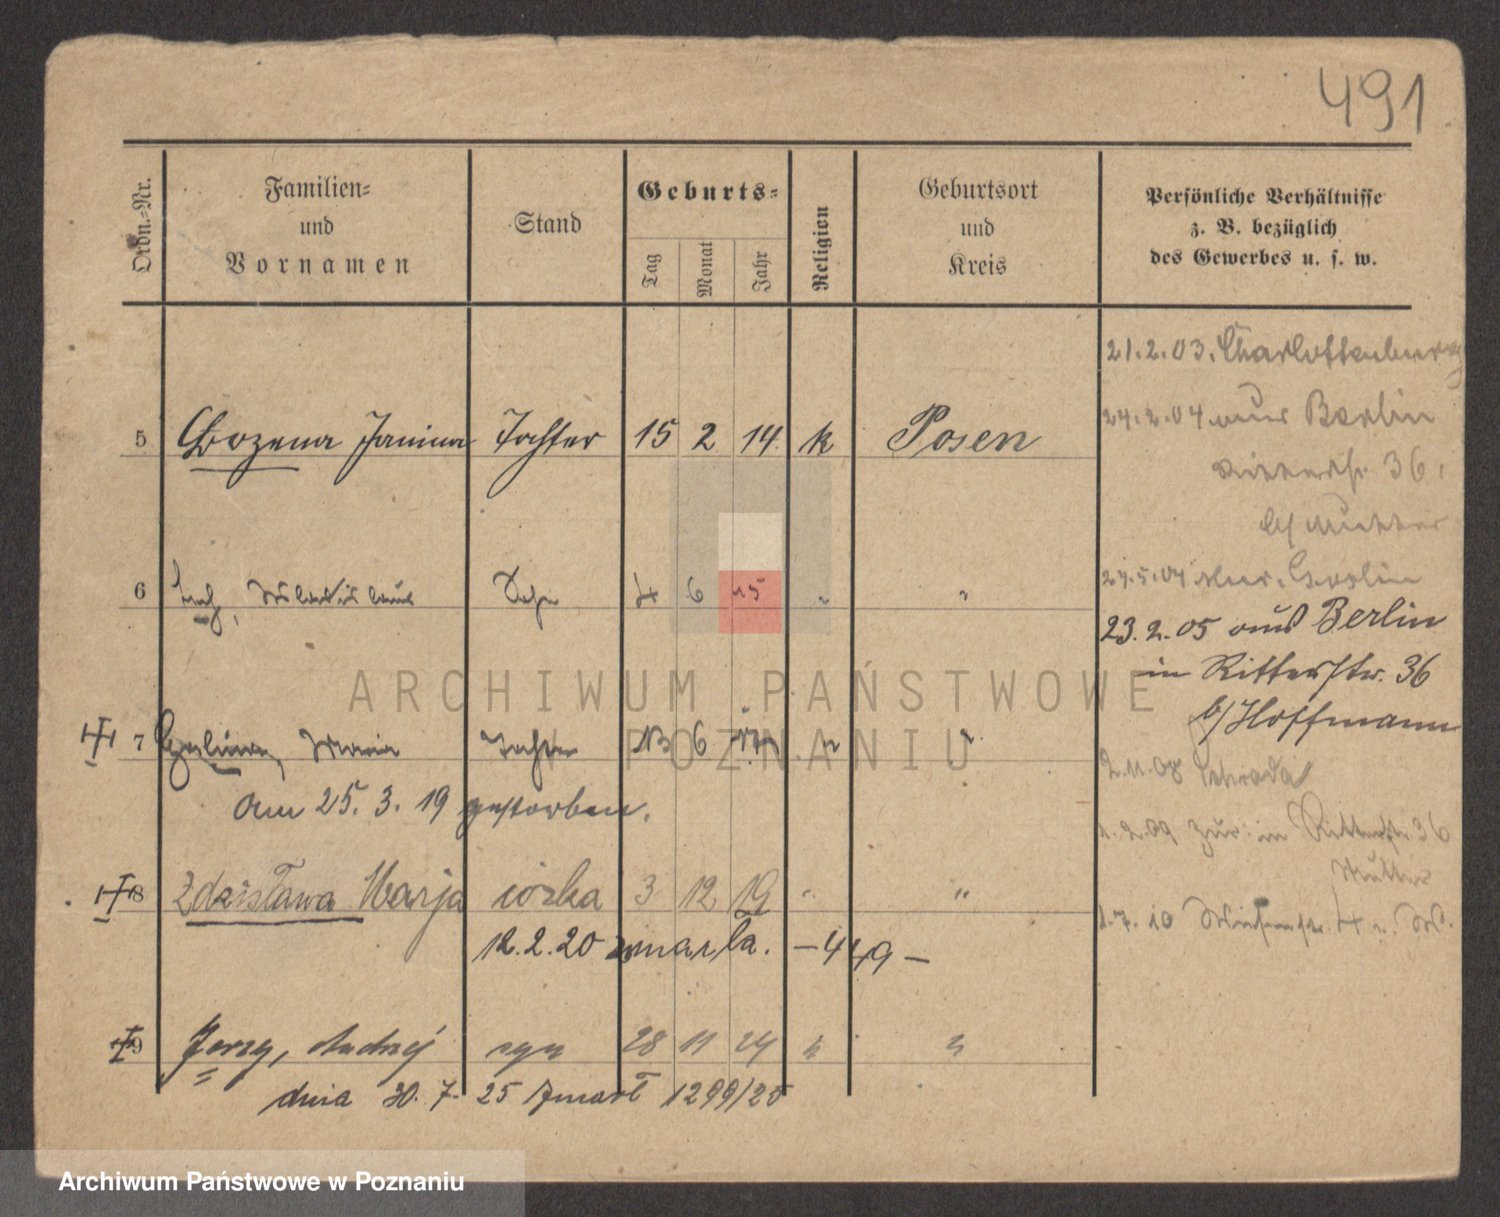 491
Ordn.-Nr.
Familien-
und
Vornamen
Stand
Geburts-
Tag
Monat
Jahr
Religion
Geburtsort
und
Kreis
Persönliche Verhältnisse
z. B. bezüglich
des Gewerbes u. s. w.
5 Bozena Janina Tochter 15 2 14 k Posen
6 Sohn 4 6 15 " "
7 Halina, Maria Tochter 13 6 " "
am 25. 3. 19 gestorben.
8 Zdzisława Marja córka 3 12 19 " "
12.2.20 zmarła. – 449 –
9 Jerzy, Andrzej syn 28 11 24 " "
dnia 30. 7. 25 zmarł 1299/25
21.2.03. Charlottenburg
24.2.04 aus Berlin
Ritterstr. 36,
b/ Mutter
24.5.04 Berlin
23.2.05 aus Berlin
in Ritterstr. 36
b/ Hoffmann
2.11.08 Schroda
2.09 zur. in Ritterstr. 36
Mutter
1.7.10 4
ARCHIWUM PAŃSTWOWE
W POZNANIU
Archiwum Państwowe w Poznaniu